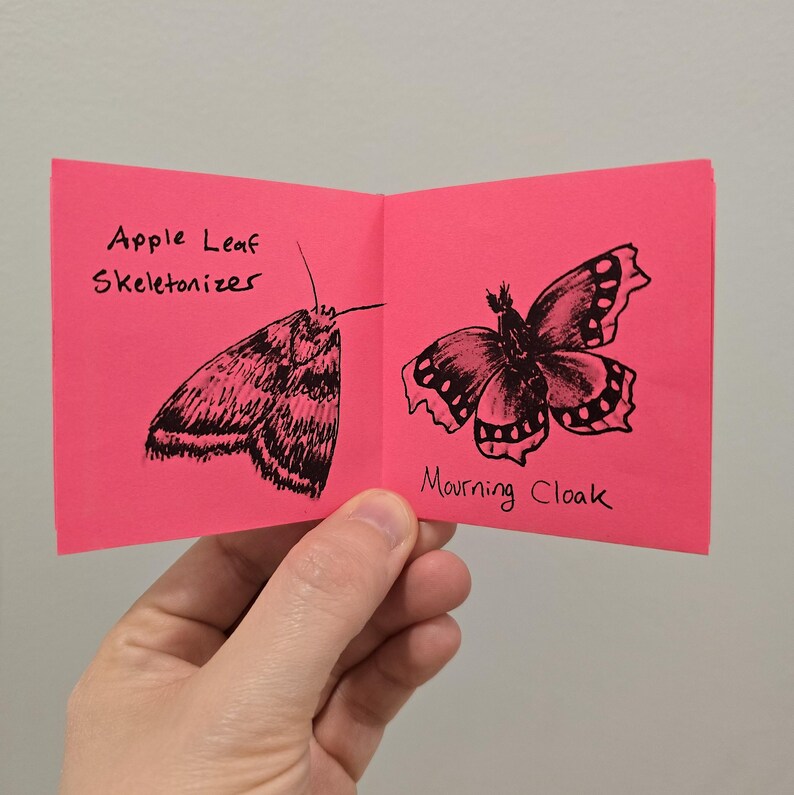 Apple Leaf
Skeletonizer
Mourning Cloak